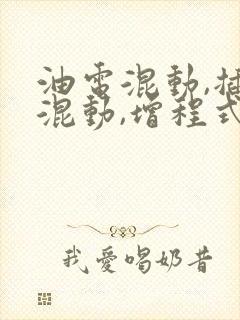 油電混動,插
混動,增程式
我愛喝奶昔